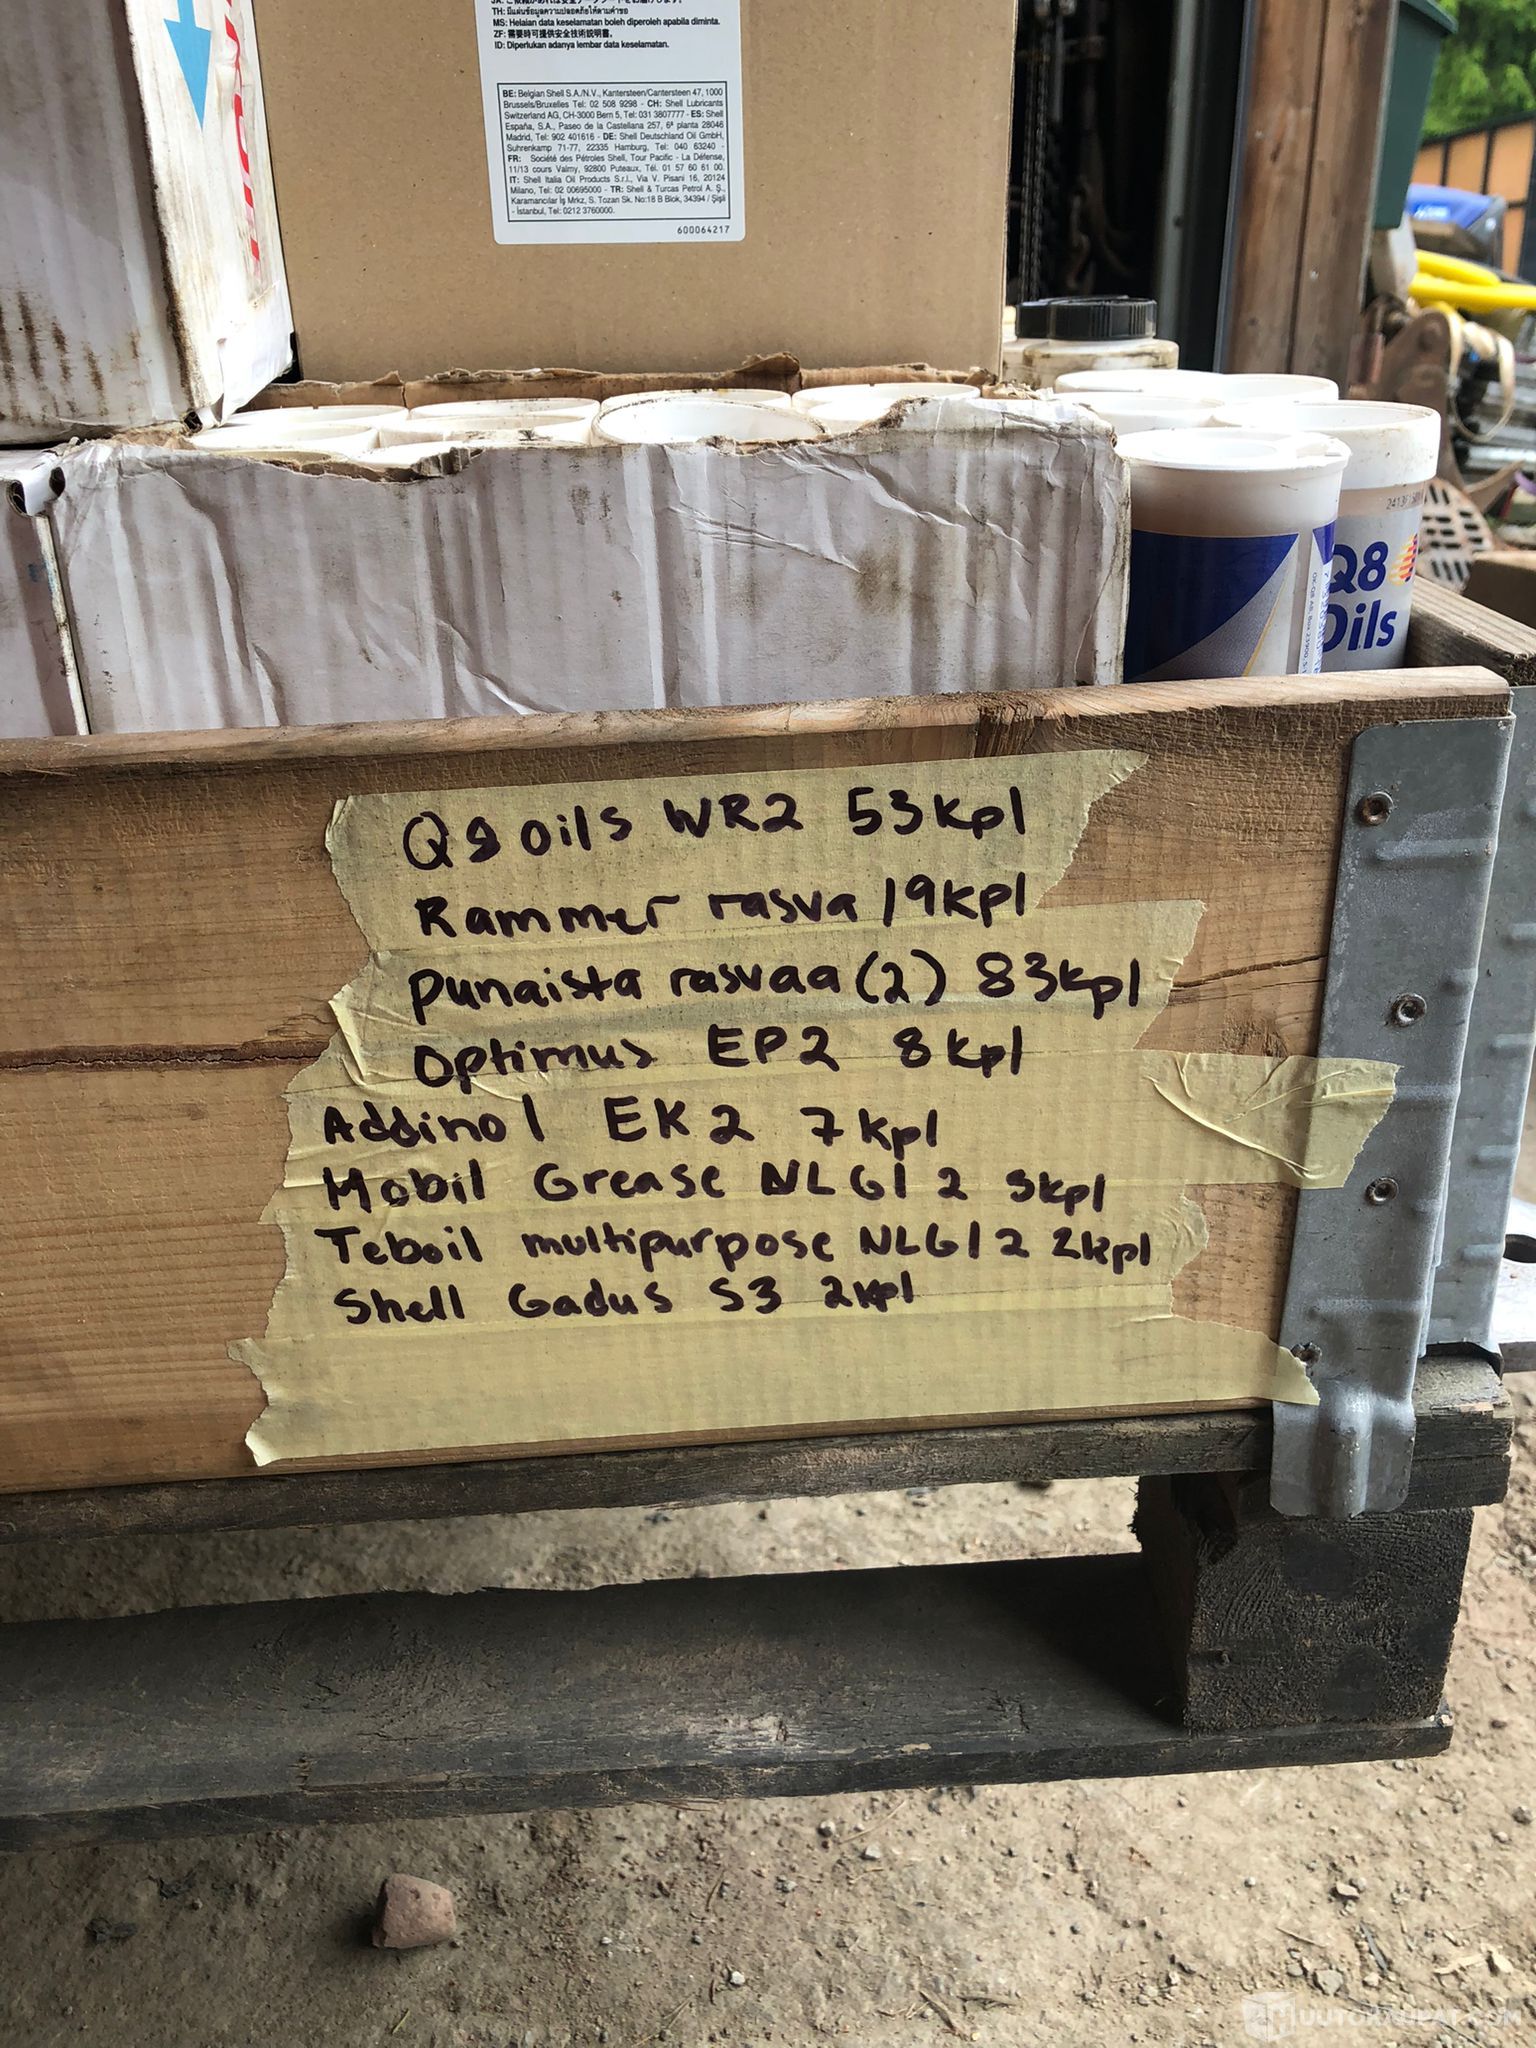 TH: มีแผ่นข้อมูลความปลอดภัยให้ตามคำขอ
MS: Helaian data keselamatan boleh diperoleh apabila diminta.
ZF: 需要時可提供安全技術説明書。
ID: Diperlukan adanya lembar data keselamatan.
BE: Belgian Shell S.A./N.V., Kantersteen/Cantersteen 47, 1000
Brussels/Bruxelles Tel: 02 508 9298 - CH: Shell Lubricants
Switzerland AG, CH-3000 Bern 5, Tel: 031 3807777 - ES: Shell
España, S.A., Paseo de la Castellana 257, 6ª planta 28046
Madrid, Tel: 902 401616 - DE: Shell Deutschland Oil GmbH,
Suhrenkamp 71-77, 22335 Hamburg, Tel: 040 63240 -
FR: Société des Pétroles Shell, Tour Pacific - La Défense,
11/13 cours Valmy, 92800 Puteaux, Tél. 01 57 60 61 00.
IT: Shell Italia Oil Products S.r.l., Via V. Pisani 16, 20124
Milano, Tel: 02 00695000 - TR: Shell & Turcas Petrol A. Ş.,
Karamancılar İş Mrkz, S. Tozan Sk. No:18 B Blok, 34394 / Şişli
- İstanbul, Tel: 0212 3760000.
600064217
Q8
Oils
Q8 oils WR2 53kpl
Rammer rasva 19kpl
punaista rasvaa (2) 83kpl
Optimus EP2 8kpl
Addinol EK2 7kpl
Mobil Grease NLGI 2 3kpl
Teboil multipurpose NLGI 2 2kpl
Shell Gadus S3 2kpl
HUUTOKAUPAT.COM